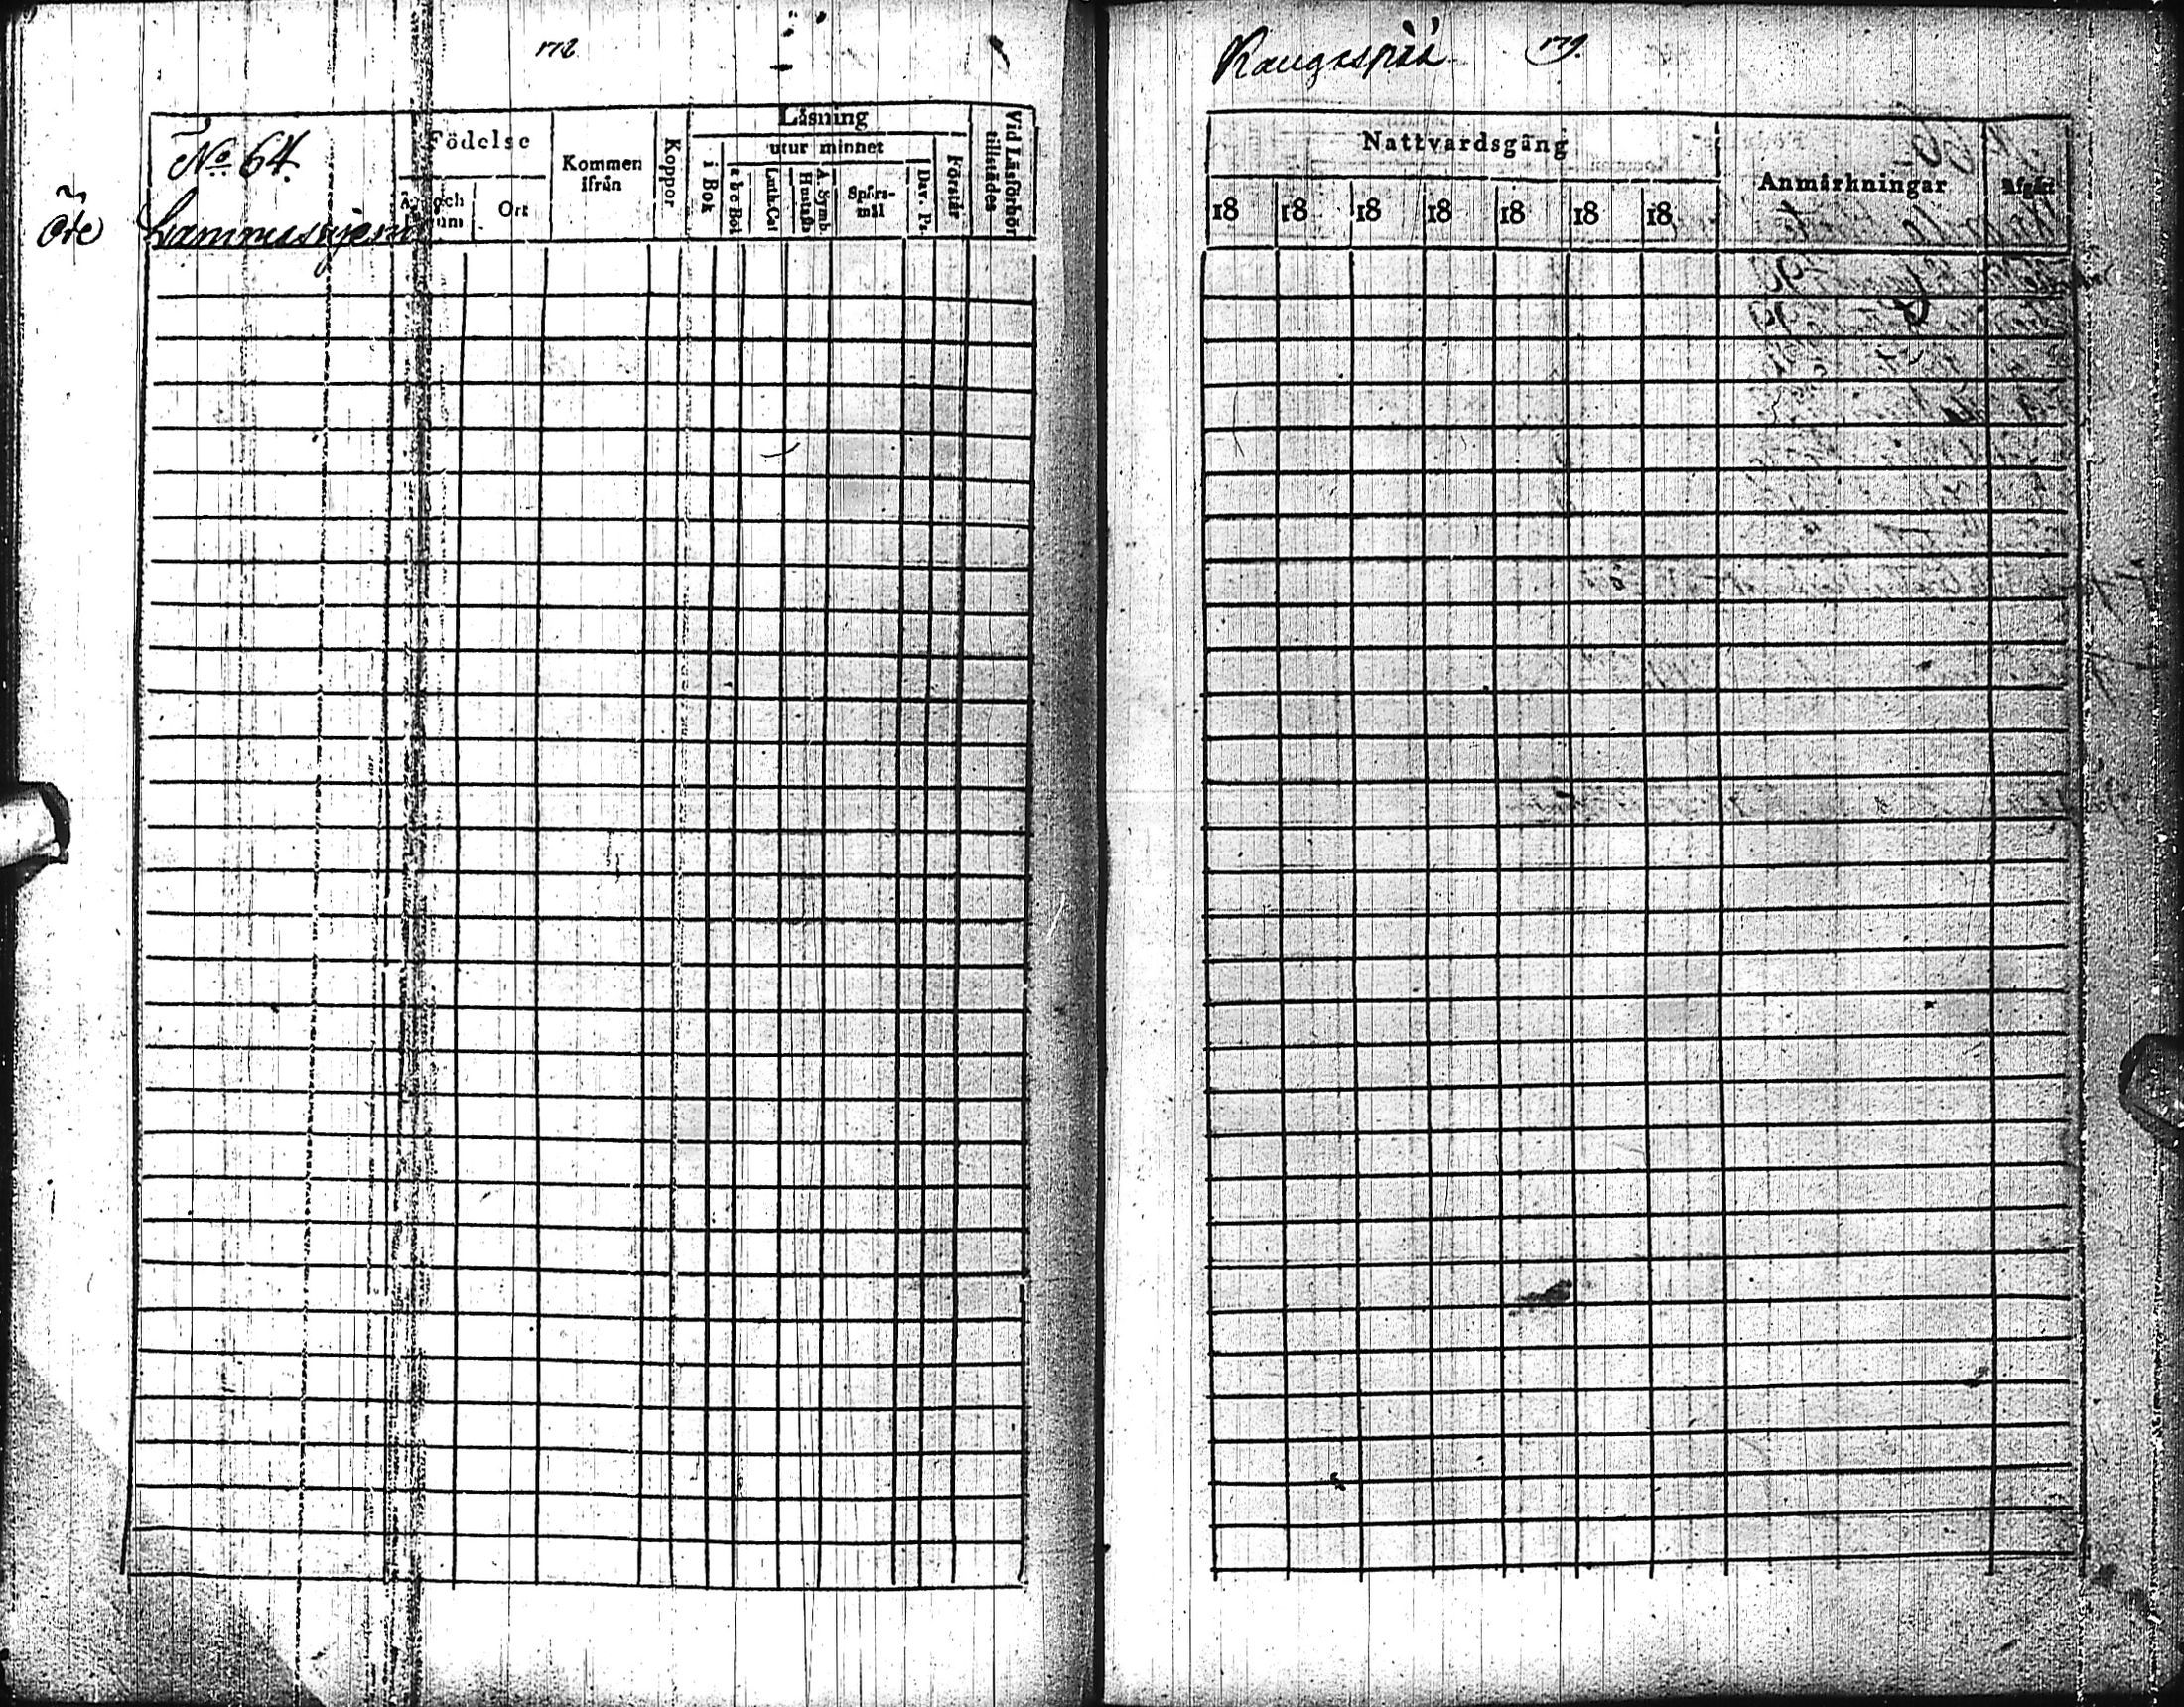 178
Kangaspää 179.
No 64.
Öde Lammasniemi
Födelse
Kommen ifrån
Koppor
Läsning
utur minnet
Vid Läsförhör tillstädes
År och
Ort
i Bok
a b c Bok
Luth. Cat
Hustafla
A. Symb.
Spörs-
mål
Dav. Ps.
Förstår
Nattvardsgång
Anmärkningar
Afgått
18 18 18 18 18 18 18